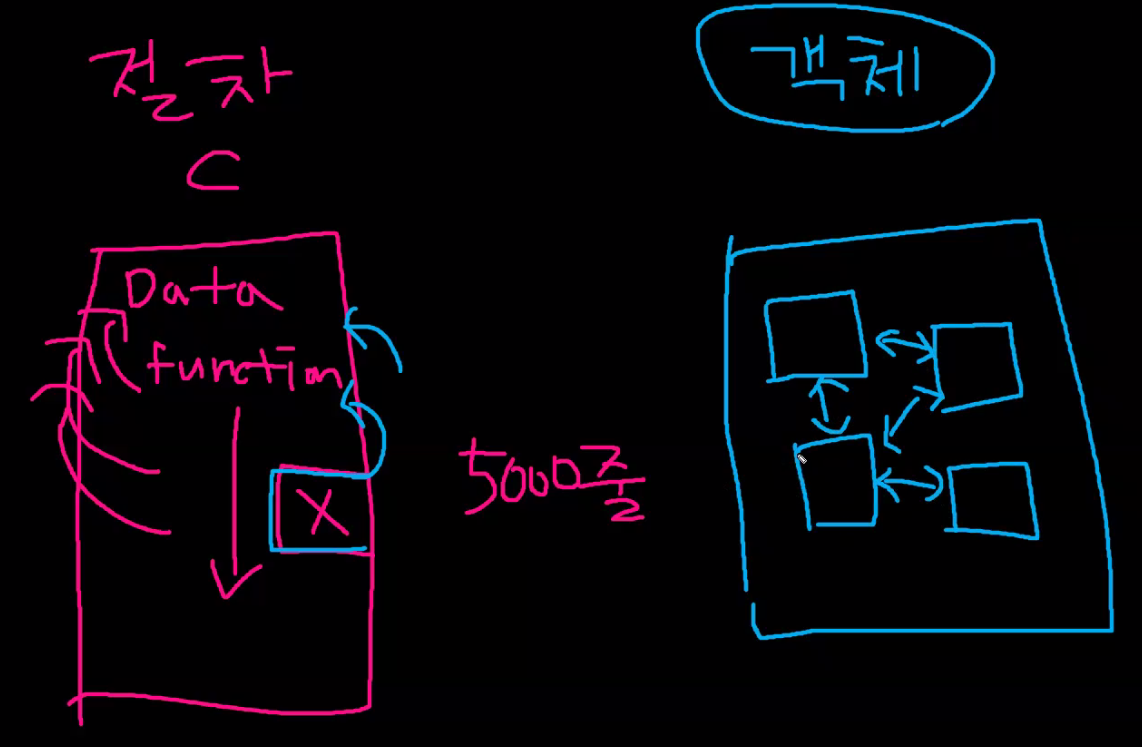 절차
C
Data
function
X
5000줄
객체